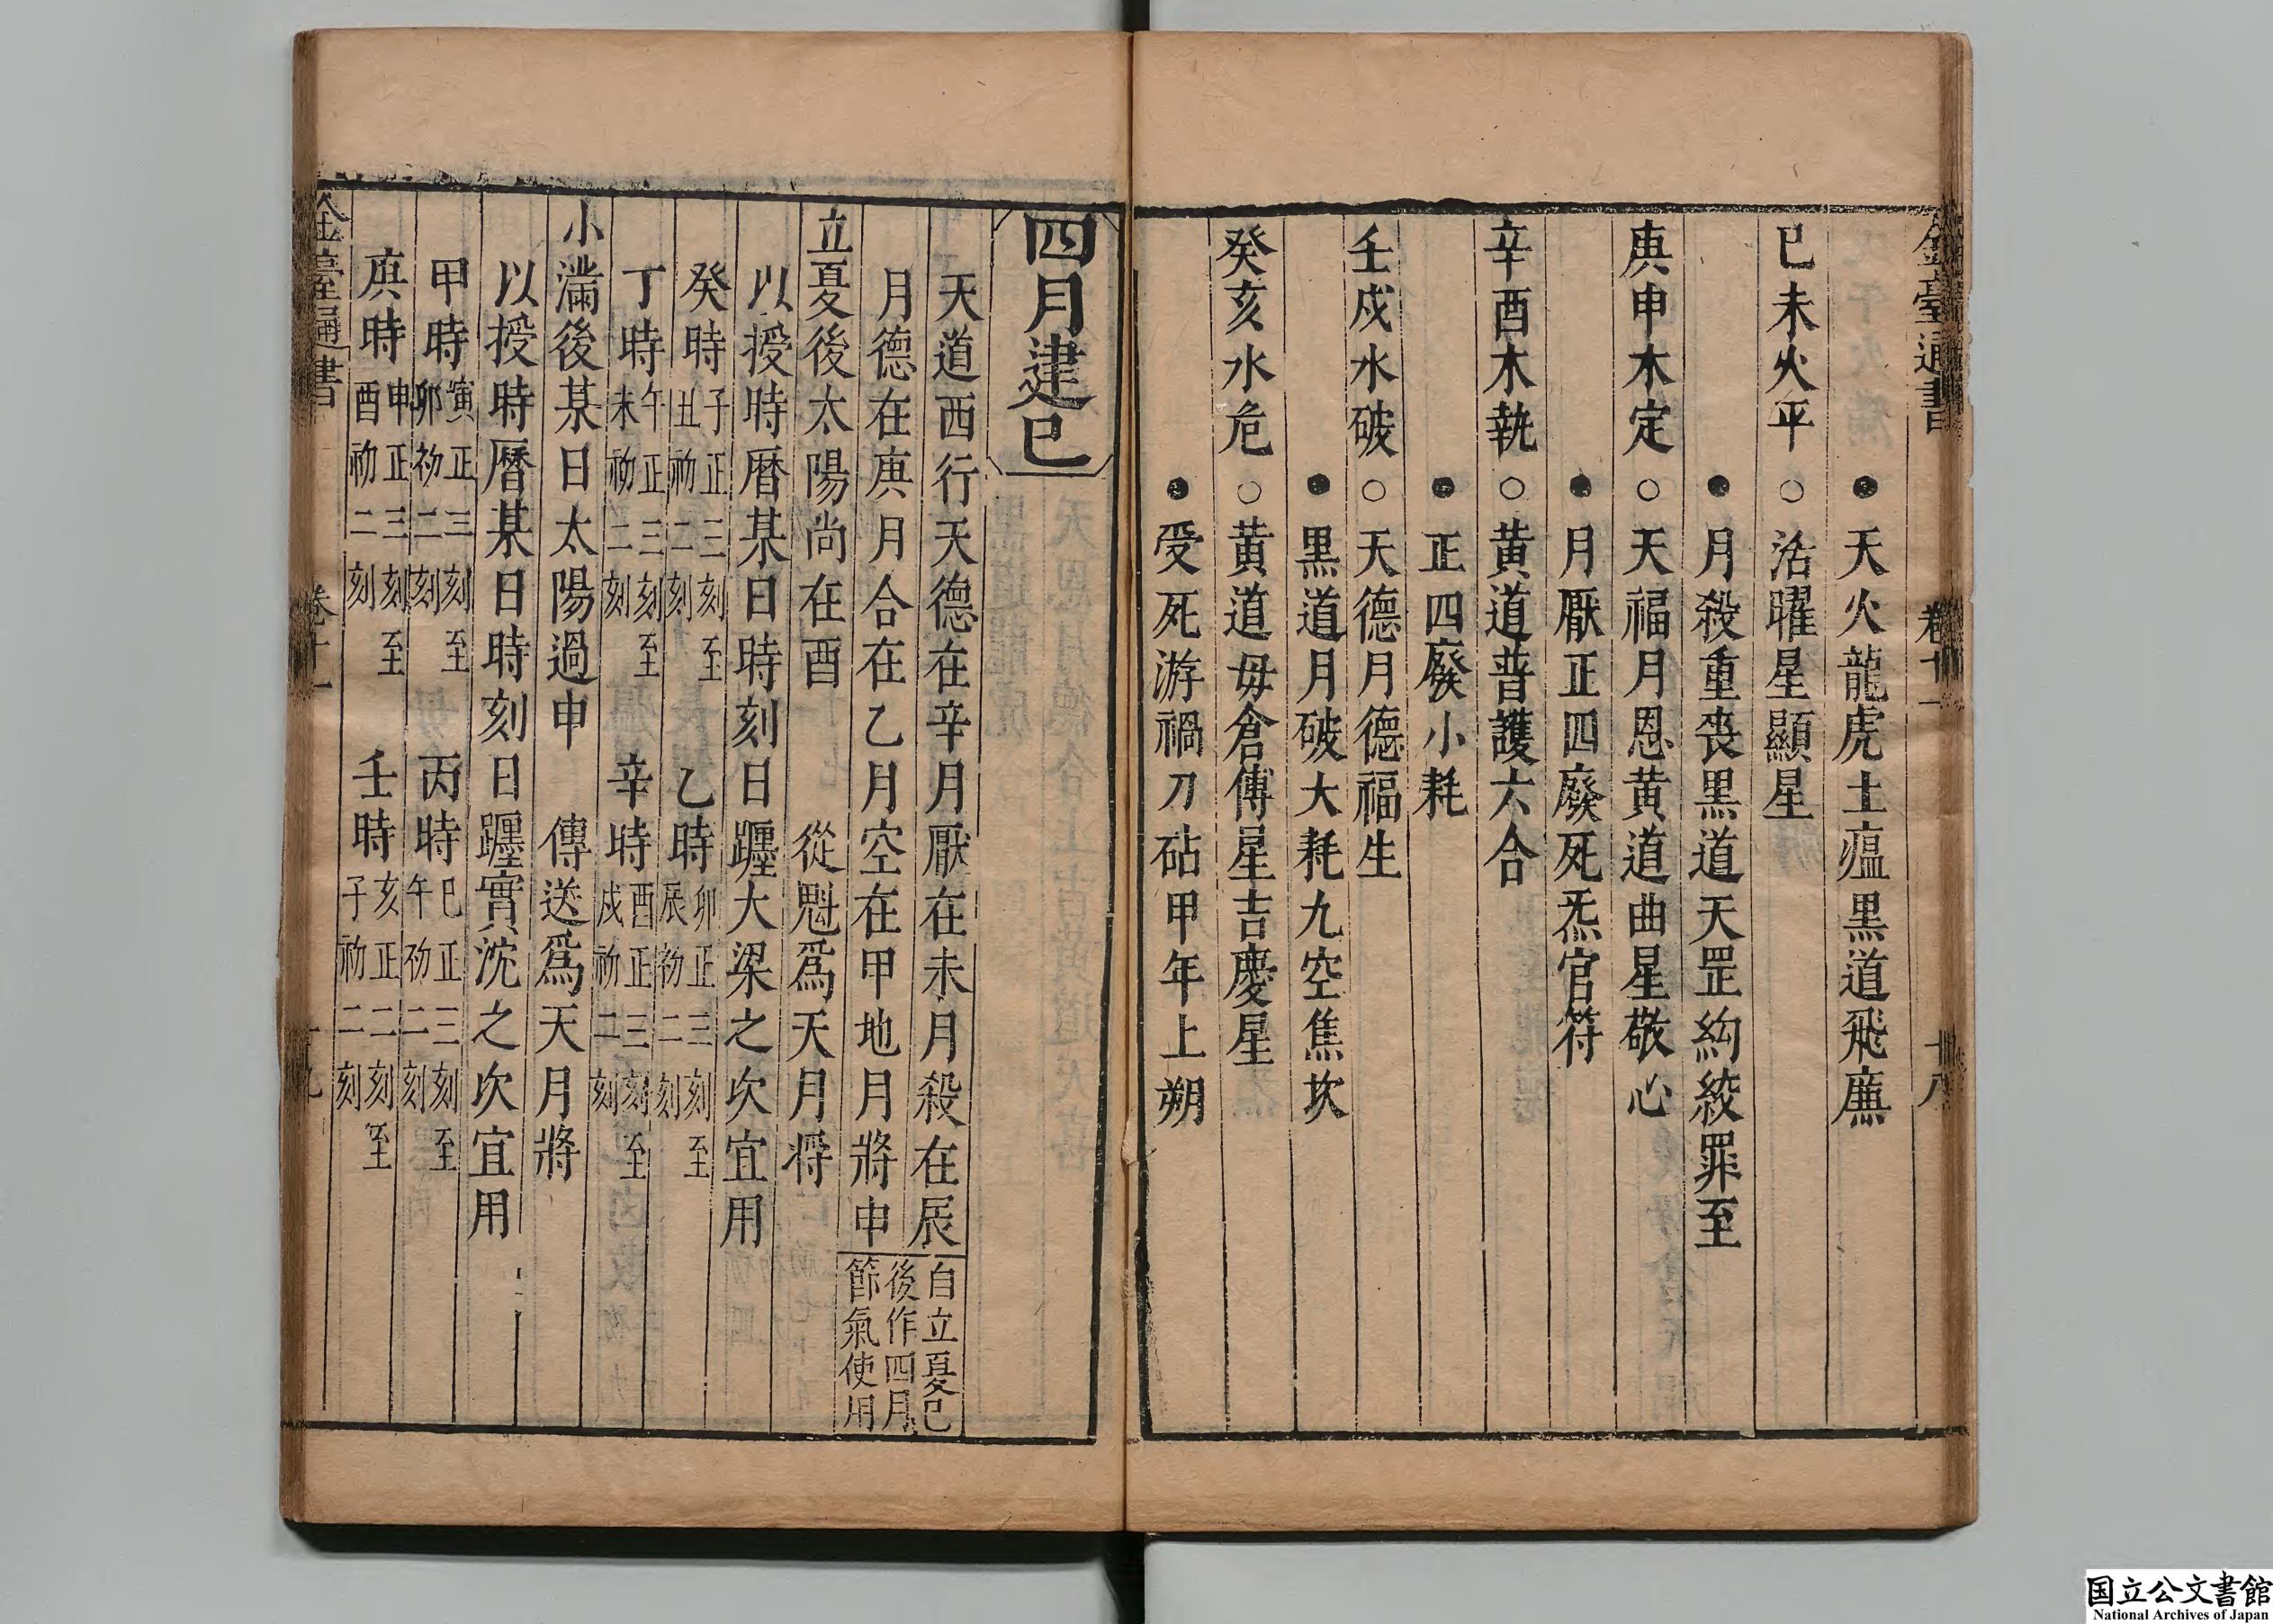 金臺通書 卷十一 十八
●天火龍虎土瘟黒道飛廉
已未火平○活曜星顯星
●月殺重喪黒道天罡絞罪至
庚申木定○天福月恩黄道曲星敬心
●月厭正四廢死炁官符
辛酉木執○黄道普護六合
●正四廢小耗
壬戍水破○天德月德福生
●黒道月破大耗九空焦坎
癸亥水危○黄道毋倉傳星吉慶星
●受死游禍刀砧甲年上朔
四月建巳
天道西行天德在辛月厭在未月殺在辰
月德在庚月合在乙月空在甲地月將申
自立夏已
後作四月
節氣使用
立夏後太陽尚在酉 從魁爲天月將
以授時曆某日時刻日躔大梁之次宜用
癸時子正三刻至丑初二刻 乙時卯正三刻至辰初二刻
丁時午正三刻至未初二刻 辛時酉正三刻至戍初二刻
小滿後某日太陽過申 傳送爲天月將
以授時曆某日時刻日躔實沈之次宜用
甲時寅正三刻至卯初二刻 丙時巳正三刻至午初二刻
庚時申正三刻至酉初二刻 壬時亥正二刻至子初二刻
金臺通書 卷十一 十九
国立公文書館
National Archives of Japan